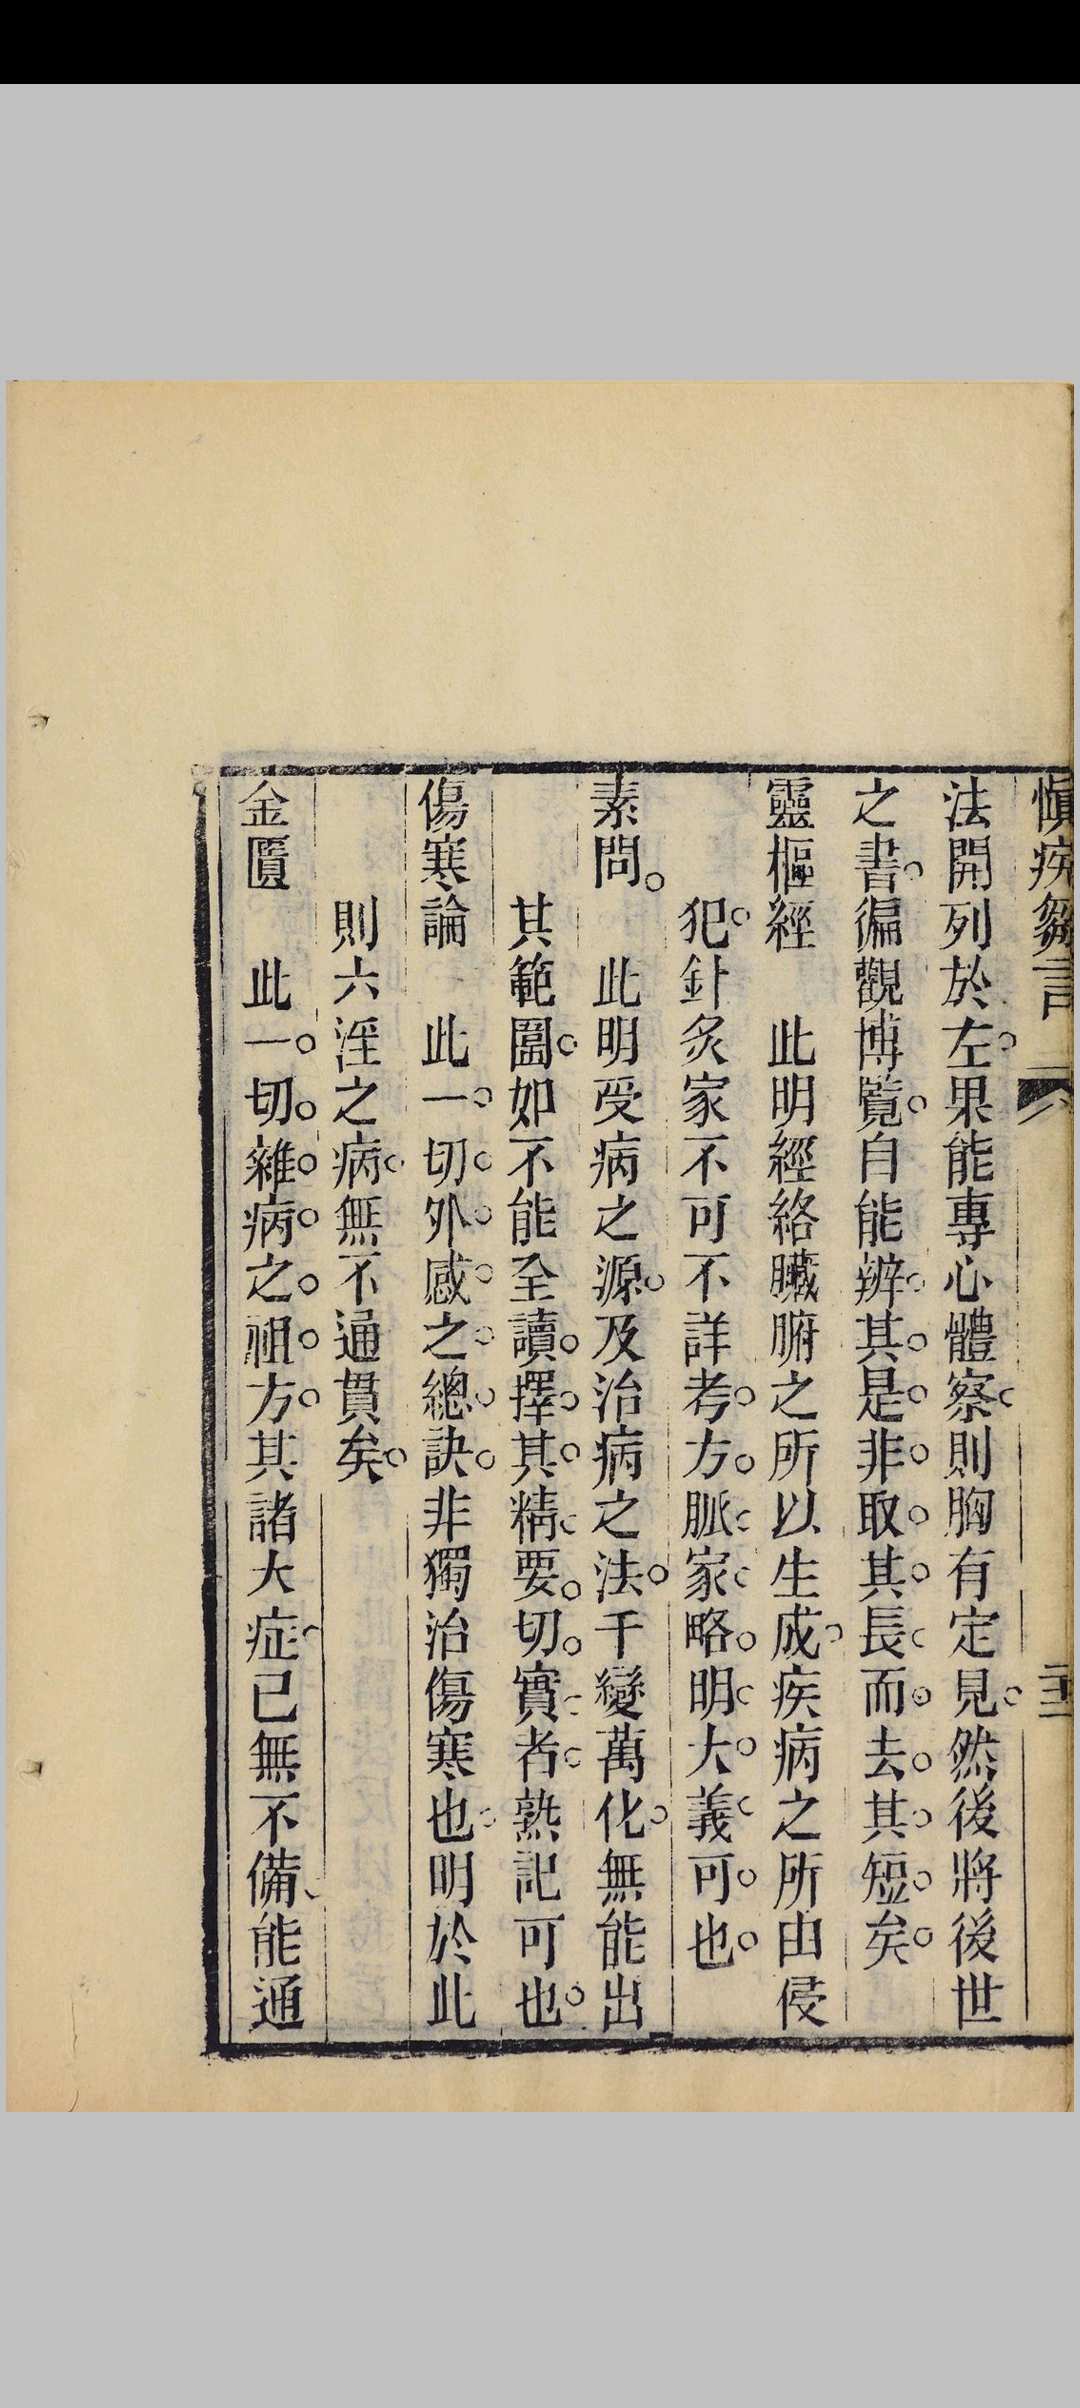 慎疾芻言
法開列於左。果能專心體察。則胸有定見。然後將後世
之書。徧觀博覽。自能辨。其。是。非。取。其。長。而。去。其。短。矣。
靈樞經　此明經絡臟腑之所以生成。疾病之所由侵
犯。針灸家不可不詳考。方。脈。家。略。明。大。義。可。也。
素問。　此明受病之源。及治病之法。千變萬化。無能出
其範圍。如不能全讀。擇。其。精。要。切。實。者。熟記可也。
傷寒論　此一。切。外。感。之。總。訣。非獨治傷寒也。明於此
則六淫之病。無不通貫矣。
金匱　此一。切。雜。病。之。祖。方。其諸大症。已無不備。能通